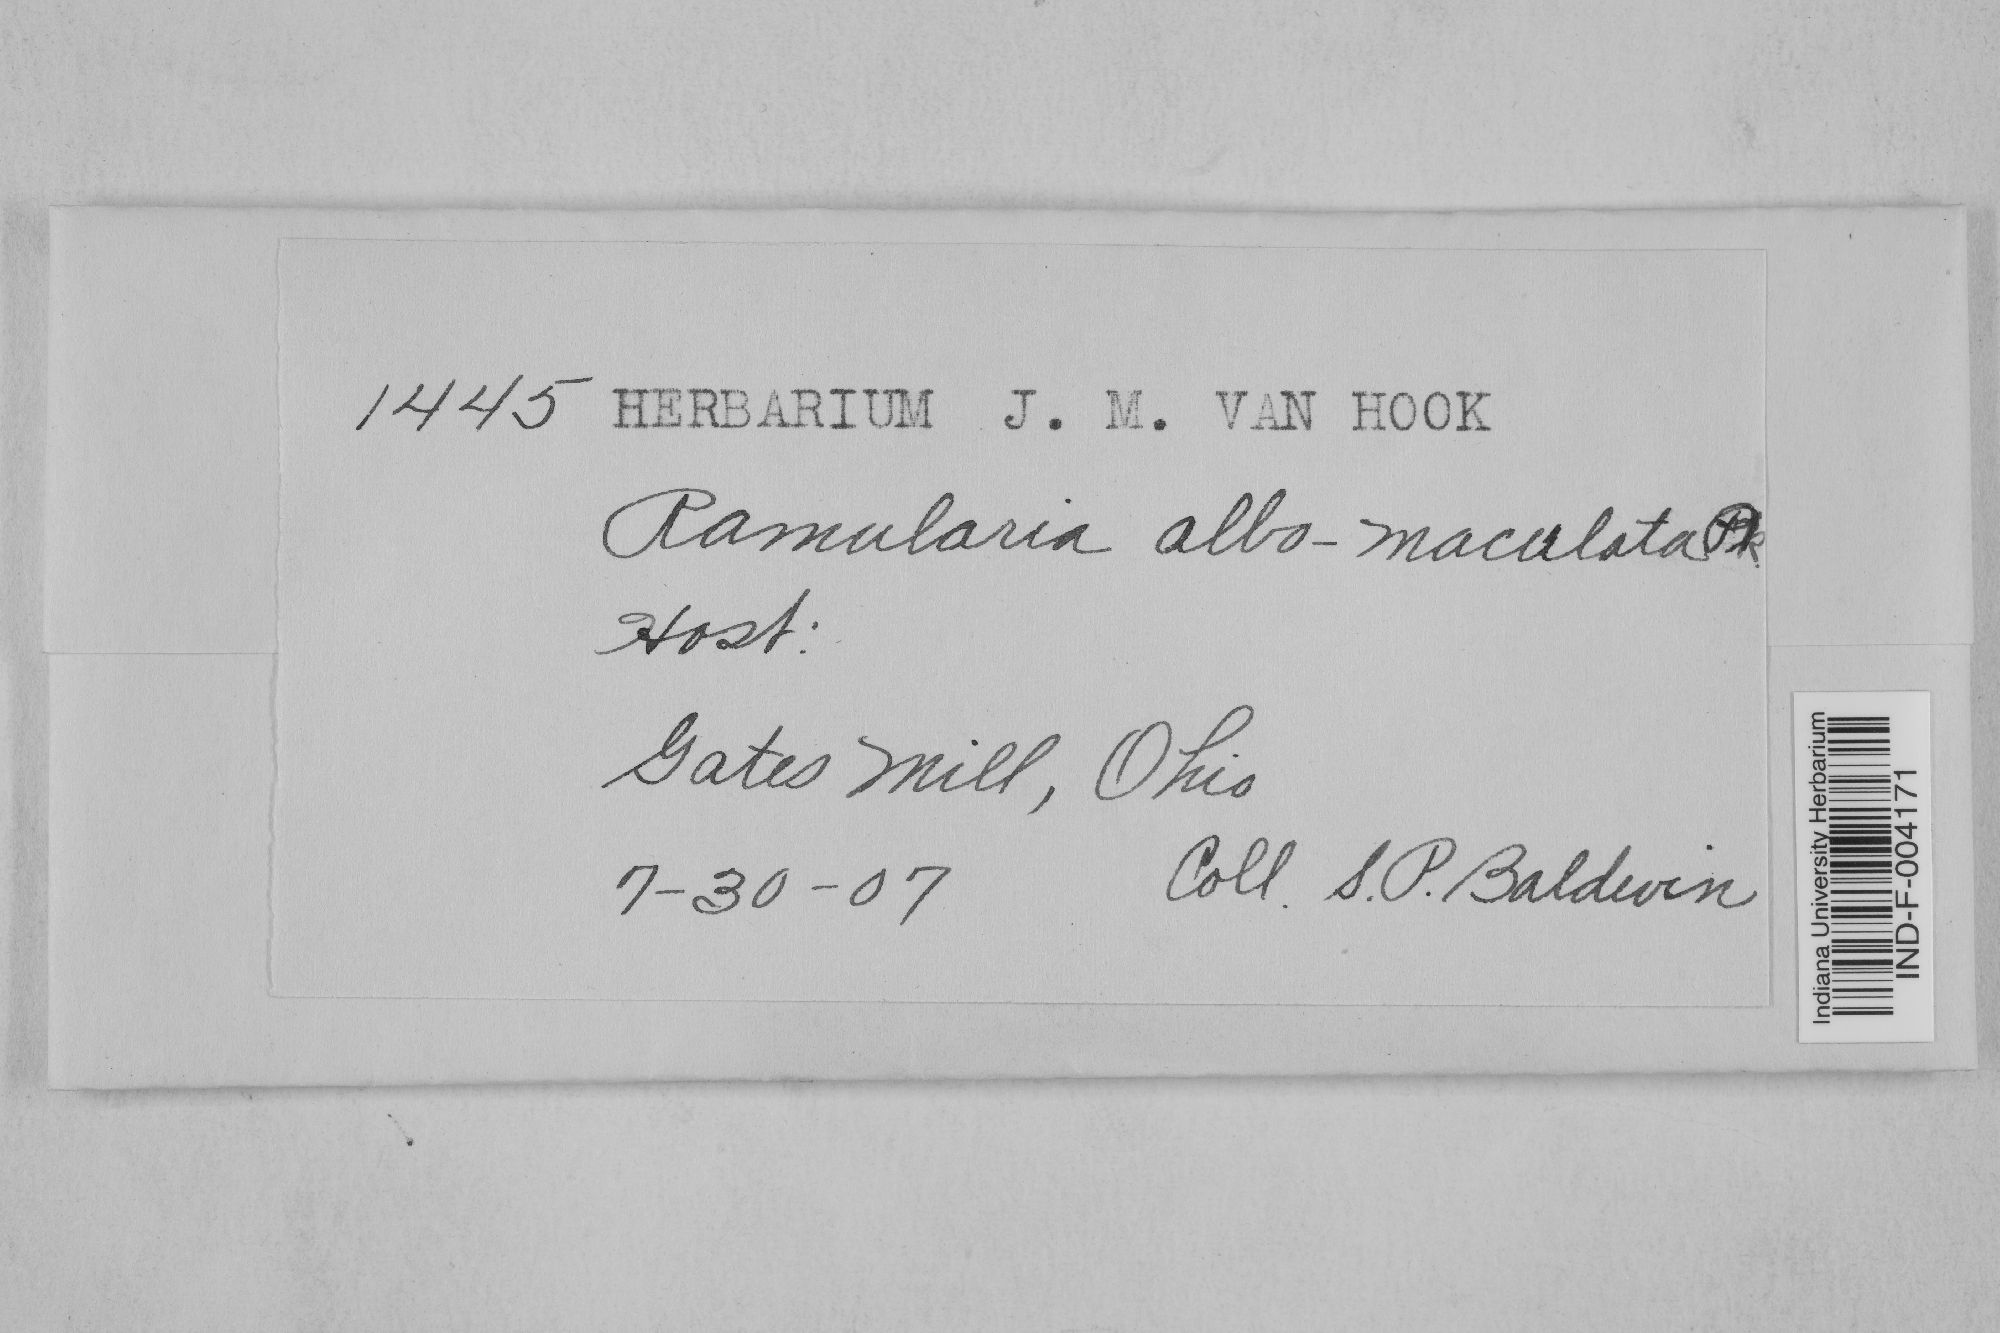 1445 HERBARIUM J. M. VAN HOOK
Ramularia albo-maculata Pk.
Host:
Gates Mill, Ohio
7-30-07 Coll. S.P. Baldwin
Indiana University Herbarium
IND-F-004171